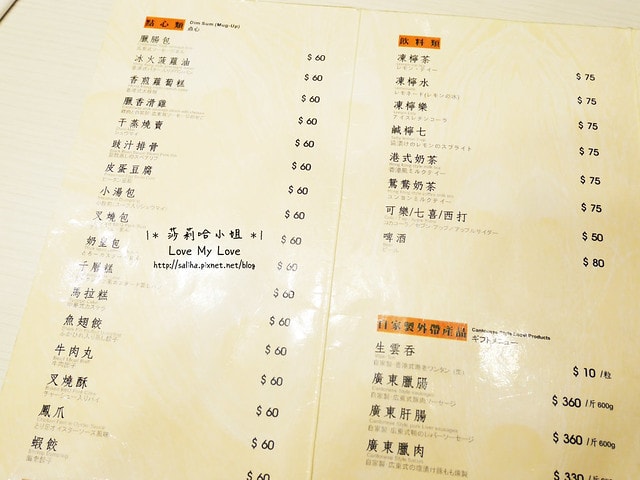 點心類 Dim Sum (Mug-Up)
点心
臘腸包 $ 60
冰火菠蘿油 $ 60
香煎蘿蔔糕 $ 60
臘香滑雞 $ 60
干蒸燒賣 $ 60
豉汁排骨 $ 60
皮蛋豆腐 $ 60
小湯包 $ 60
叉燒包 $ 60
奶皇包 $ 60
千層糕 $ 60
馬拉糕 $ 60
魚翅餃 $ 60
牛肉丸 $ 60
叉燒酥 $ 60
鳳爪 $ 60
蝦餃 $ 60
飲料類
凍檸茶 $ 75
レモンティー
凍檸水 $ 75
レモネード(レモンの水)
凍檸樂 $ 75
アイスレモンコーラ
鹹檸七 $ 75
塩漬けのレモンのスプライト
港式奶茶 $ 75
香港風ミルクティー
鴛鴦奶茶 $ 75
可樂/七喜/西打 $ 50
啤酒 $ 80
自家製外帶產品 Cantonese Style Local Products
ギフトメニュー
生雲吞 $ 10 /粒
廣東臘腸 $ 360 /斤 600g
廣東肝腸 $ 360 /斤 600g
廣東臘肉 $ 330 /斤 600g
|* 莎莉哈小姐 *|
Love My Love
http://saliha.pixnet.net/blog